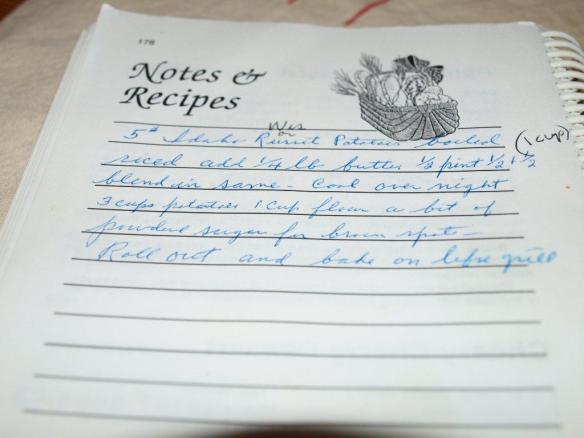 178
Notes &
Recipes
Wis
5# Idaho or Russit Potatoes boiled (1 cup)
riced add 1/4 lb butter 1/2 pint 1/2 + 1/2
blend in same - Cool over night
3 cups potatoes 1 cup flour a bit of
powdered sugar for brown spots -
Roll out and bake on lefse grill